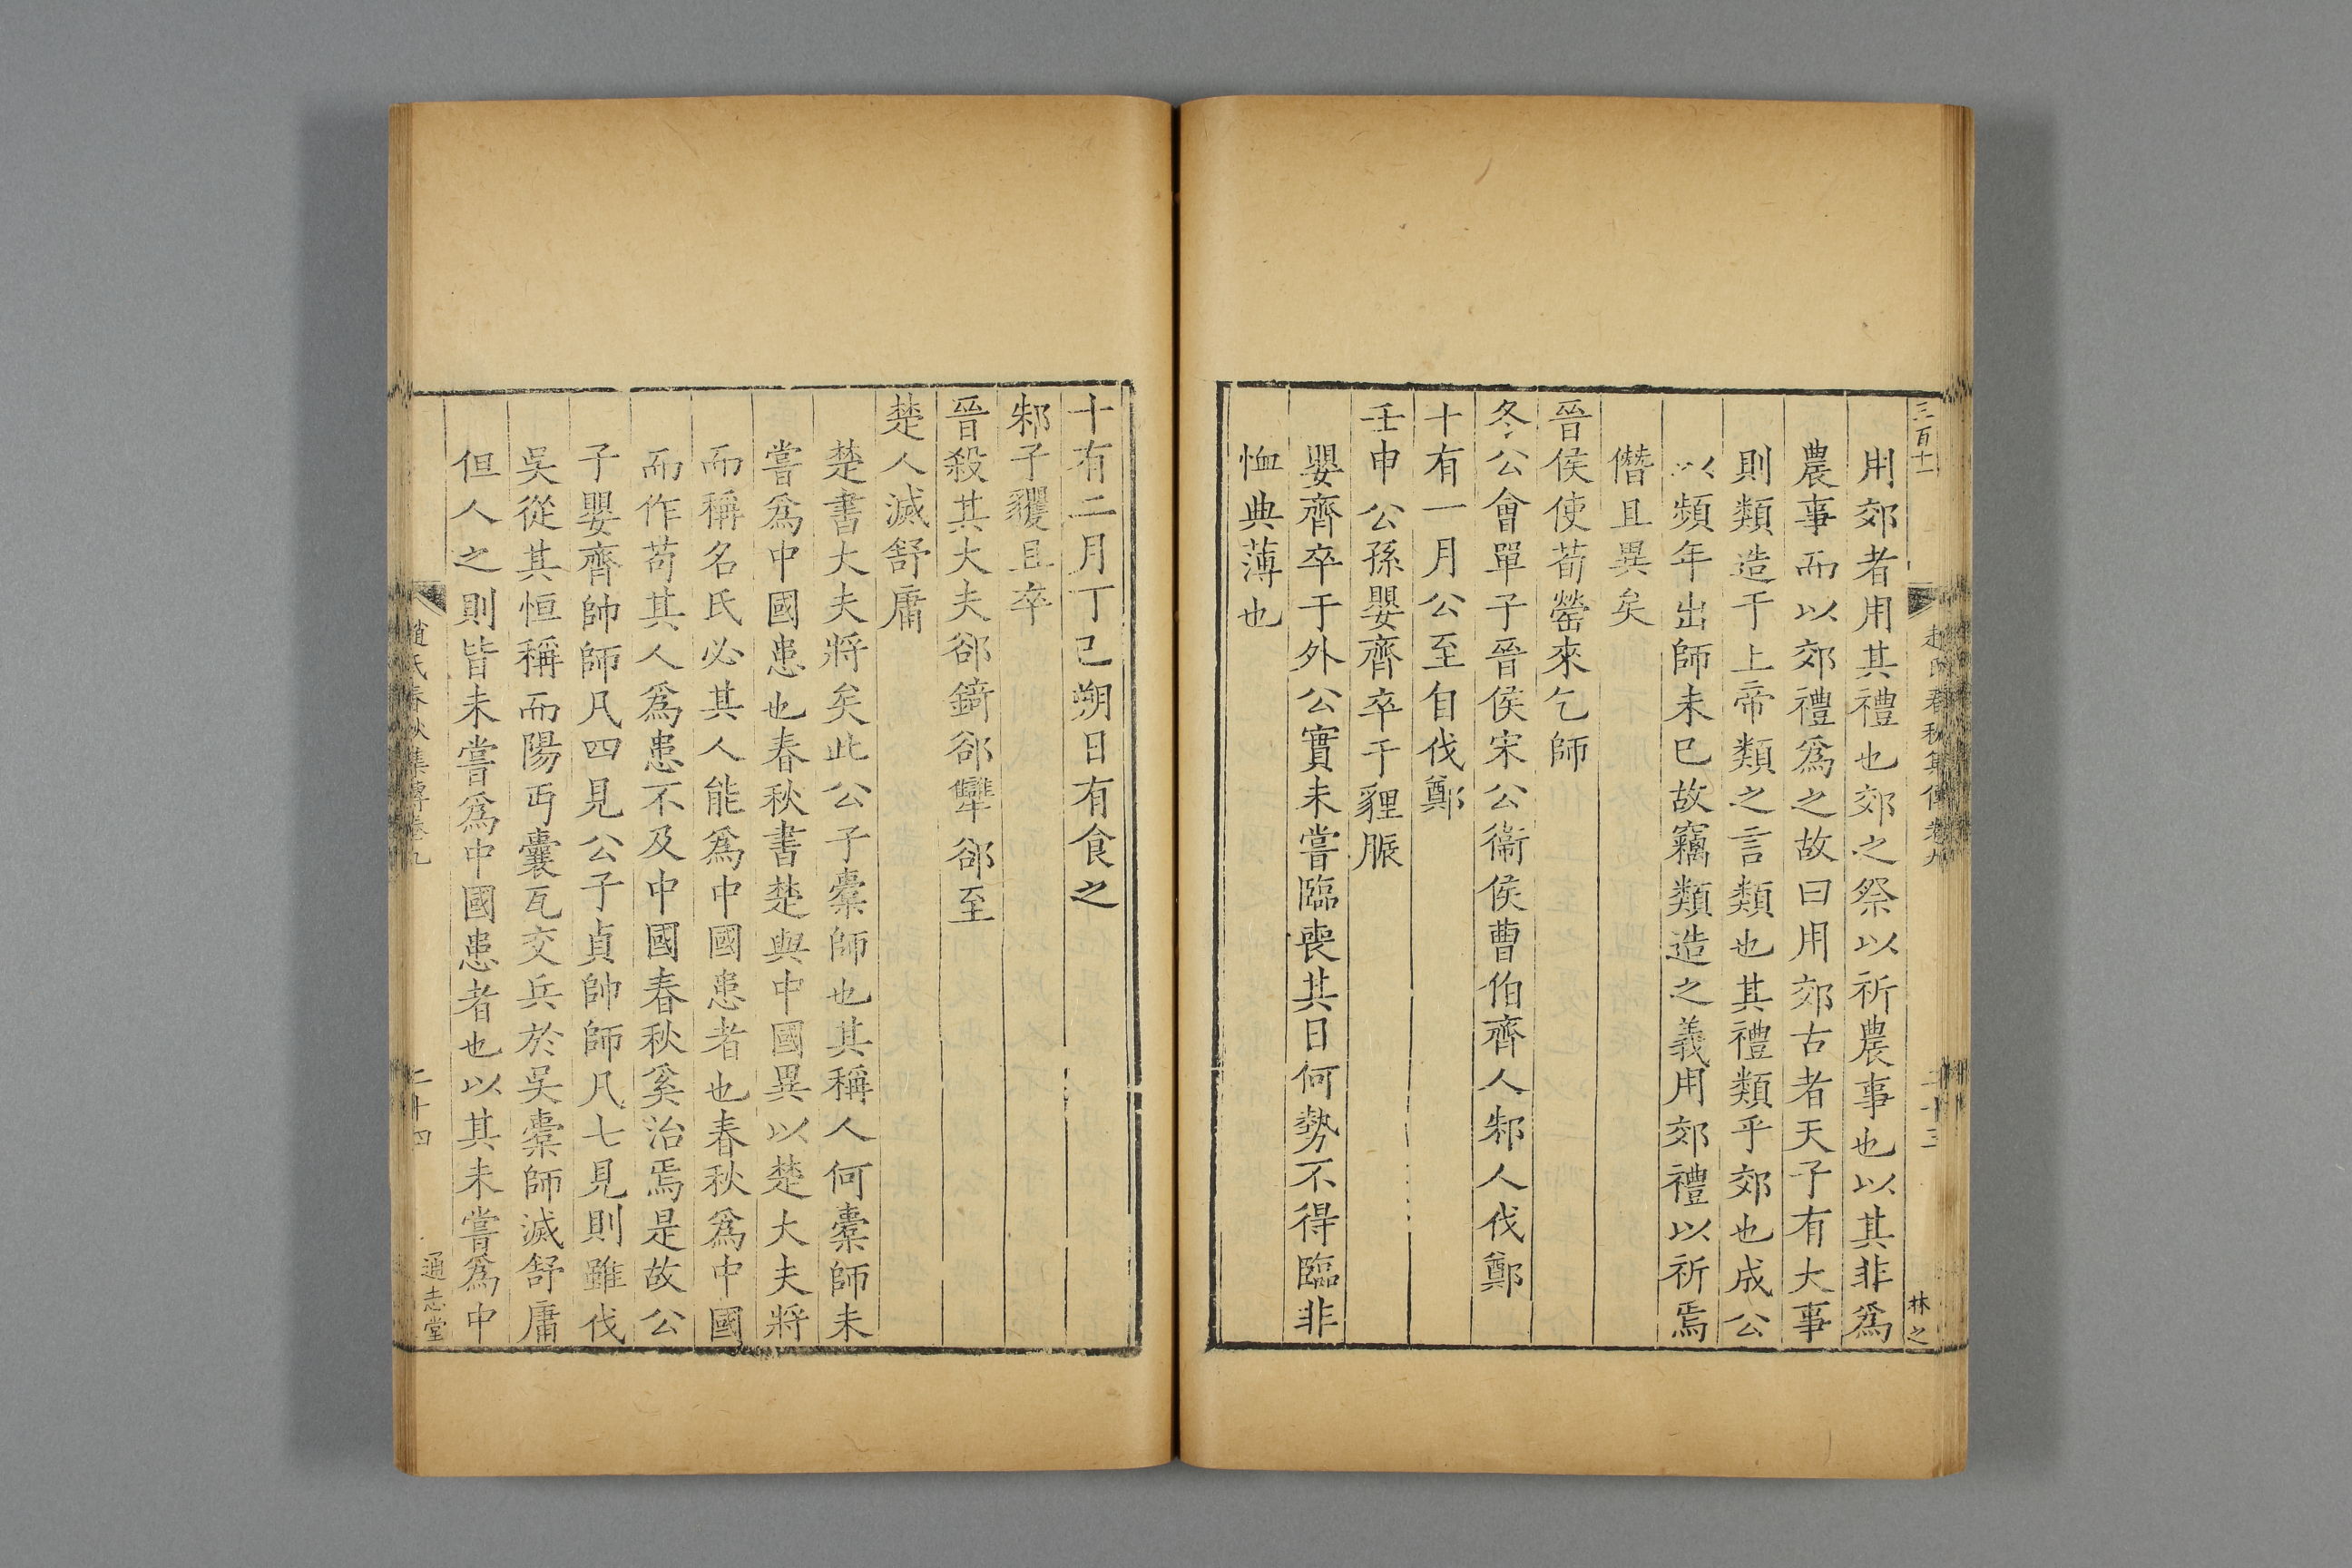 三百十一
趙氏春秋集傳卷九
二十三
林之
用郊者用其禮也郊之祭以祈農事也以其非爲
農事而以郊禮爲之故曰用郊古者天子有大事
則類造于上帝類之言類也其禮類乎郊也成公
以頻年出師未已故竊類造之義用郊禮以祈焉
僭且異矣
晉侯使荀罃來乞師
冬公會單子晉侯宋公衞侯曹伯齊人邾人伐鄭
十有一月公至自伐鄭
壬申公孫嬰齊卒于貍脤
嬰齊卒于外公實未嘗臨喪其日何勢不得臨非
恤典薄也
十有二月丁已朔日有食之
邾子貜且卒
晉殺其大夫郤錡郤犨郤至
楚人滅舒庸
楚書大夫將矣此公子槖師也其稱人何槖師未
嘗爲中國患也春秋書楚與中國異以楚大夫將
而稱名氏必其人能爲中國患者也春秋爲中國
而作苟其人爲患不及中國春秋奚治焉是故公
子嬰齊帥師凡四見公子貞帥師凡七見則雖伐
吳從其恒稱而陽丏囊瓦交兵於吳槖師滅舒庸
但人之則皆未嘗爲中國患者也以其未嘗爲中
趙氏春秋集傳卷九
二十四
通志堂